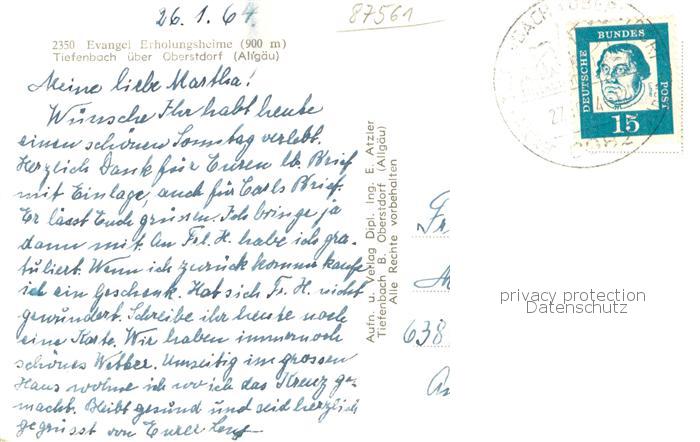 26. 1. 64.
87561
2350 Evangel Erholungsheime (900 m)
Tiefenbach über Oberstdorf (Allgäu)
Meine liebe Martha!
Wünsche Ihr habt heute
einen schönen Sonntag verlebt.
Herzlich Dank für Euren lb. Brief
mit Einlage, auch für Carls Brief.
Er lässt Euch grüssen. Ich bringe ja
dann mit. An Frl. H. habe ich gra-
tuliert. Wenn ich zurück komme kaufe
ich ein Geschenk. Hat sich Fr. H. nicht
gewundert. Schreibe ihr heute noch
eine Karte. Wir haben immernoch
schönes Wetter. Umseitig im grossen
Haus wohne ich wo ich das Kreuz ge-
macht. Bleibt gesund und seid herzlich
gegrüsst von Eurer
Aufn. u. Verlag Dipl. Ing. E. Atzler
Tiefenbach B. Oberstdorf (Allgäu)
Alle Rechte vorbehalten
DEUTSCHE BUNDES POST
15
27.
638
privacy protection
Datenschutz